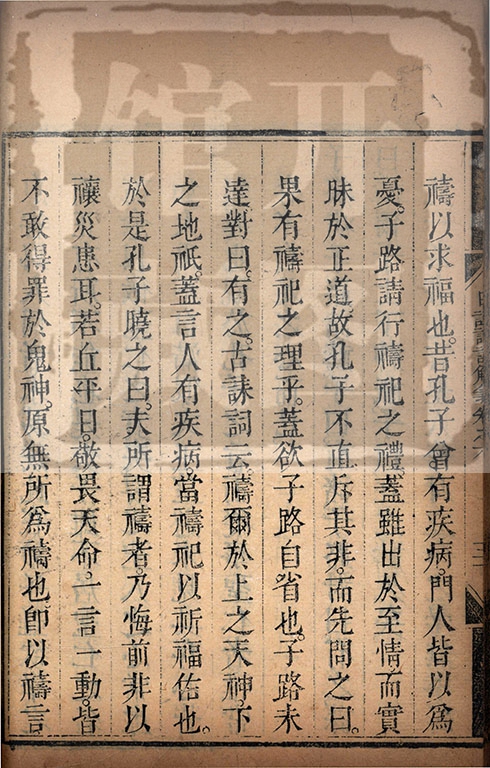 禱以求福也。昔孔子曾有疾病。門人皆以為
憂。子路請行禱祀之禮。蓋雖出於至情而實
昧於正道。故孔子不直斥其非。而先問之曰。
果有禱祀之理乎。蓋欲子路自省也。子路未
達對曰。有之。古誄詞云。禱爾於上之天神下
之地祇。蓋言人有疾病。當禱祀以祈福佑也。
於是孔子曉之曰。夫所謂禱者。乃悔前非以
禳災患耳。若丘平日。敬畏天命。一言一動。皆
不敢得罪於鬼神。原無所為禱也。即以禱言
日講
解義卷六